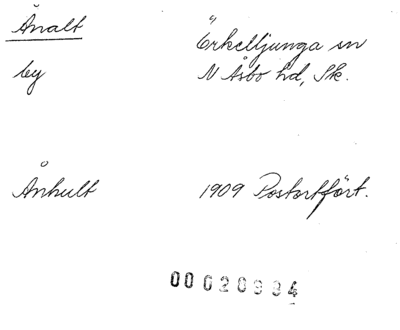 Ånalt Örkelljunga sn
by N Åsbo hd, Sk.
Ånhult 1909 Postortfört.
00020984